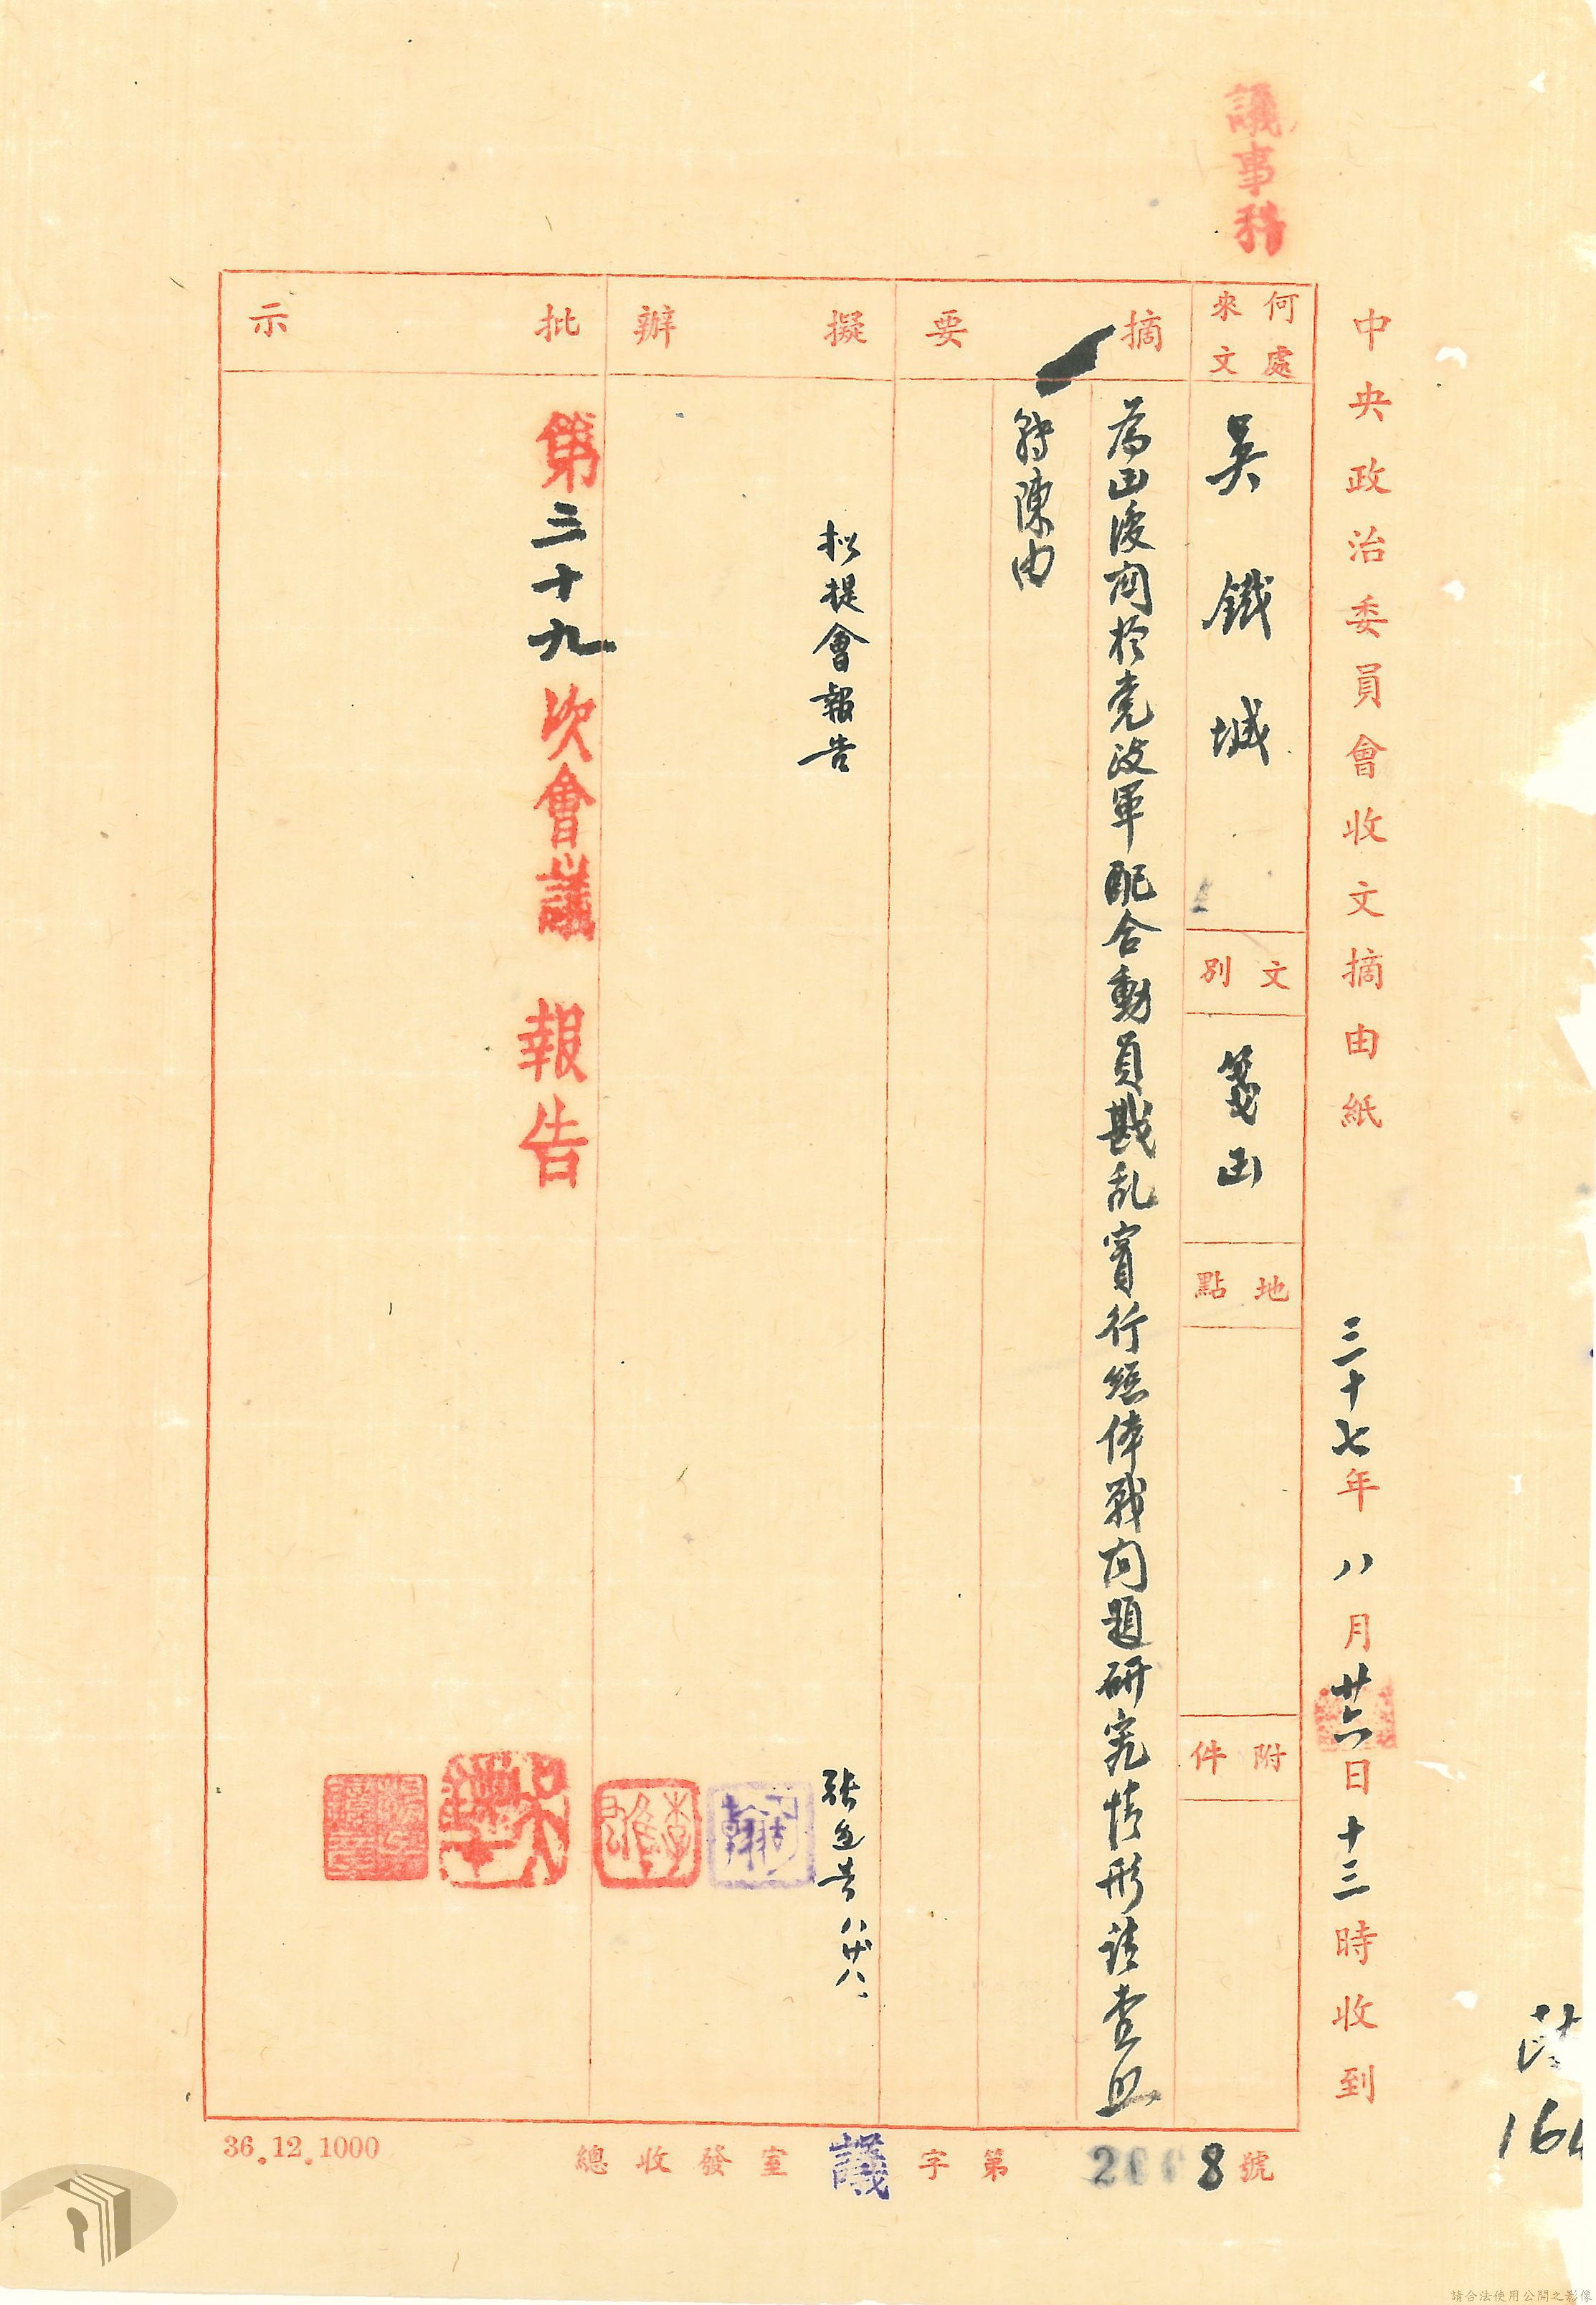 議事科
中央政治委員會收文摘由紙 三十七年八月廿六日十三時收到
何處來文
吳鐵城
文別
箋函
地點
附件
摘要
為函復關於党政軍配合動員戡乱實行總体戰问題研究情形請查照
轉陳由
擬辦
拟提會報告
八廿八
批示
第三十九次會議 報告
總收發室議字第 8號
36.12.1000
164
請合法使用公開之影像